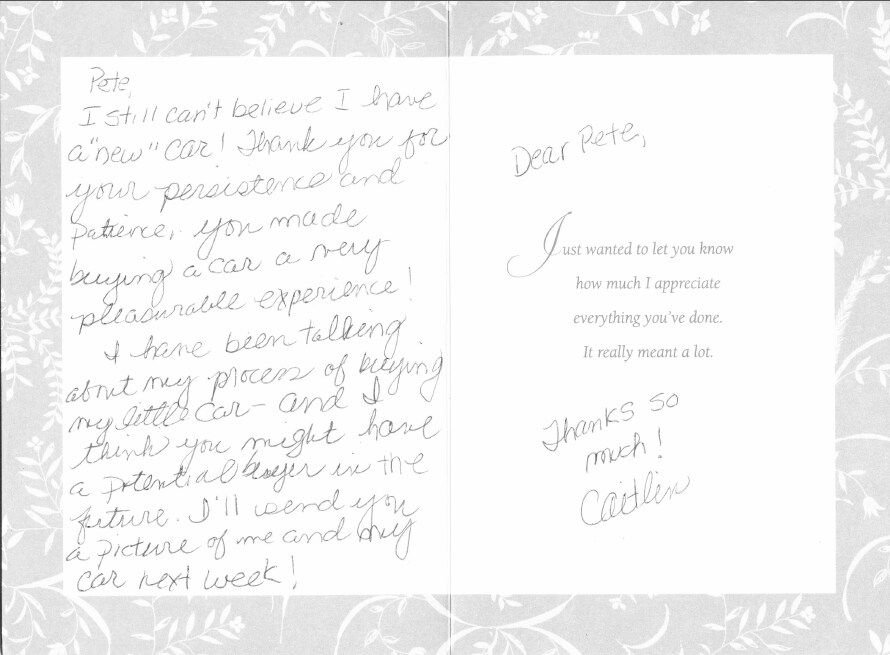 Pete,
I still can't believe I have
a "new" car! Thank you for
your persistence and
patience, you made
buying a car a very
pleasurable experience!
I have been talking
about my process of buying
my little car - and I
think you might have
a potential buyer in the
future. I'll send you
a picture of me and my
car next week!
Dear Pete,
Just wanted to let you know
how much I appreciate
everything you've done.
It really meant a lot.
Thanks so
much!
Caitlin